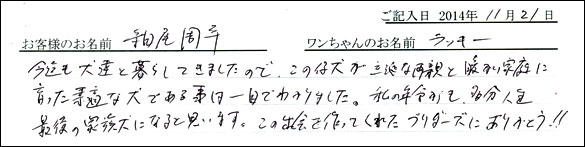 ご記入日 2014年 11月 21日
お客様のお名前 釉尾周平 ワンちゃんのお名前 ラッキー
今迄も犬達と暮らしてきましたので、この仔犬が立派な両親と暖かい家庭に
育った素適な犬である事は一目でわかりました。私の年令からも、多分人生
最後の家族犬になると思います。この出会を作ってくれたブリダーズにありがとう!!